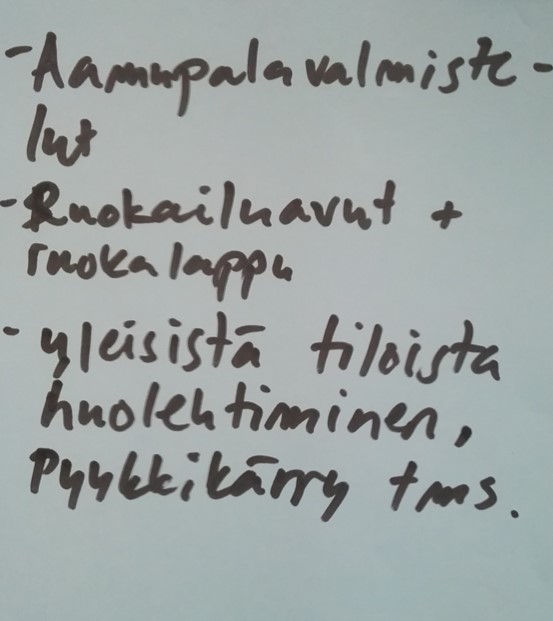 - Aamupalavalmiste-
lut
- Ruokailuavut +
ruokalappu
- yleisistä tiloista
huolehtiminen,
Pyykkikärry tms.